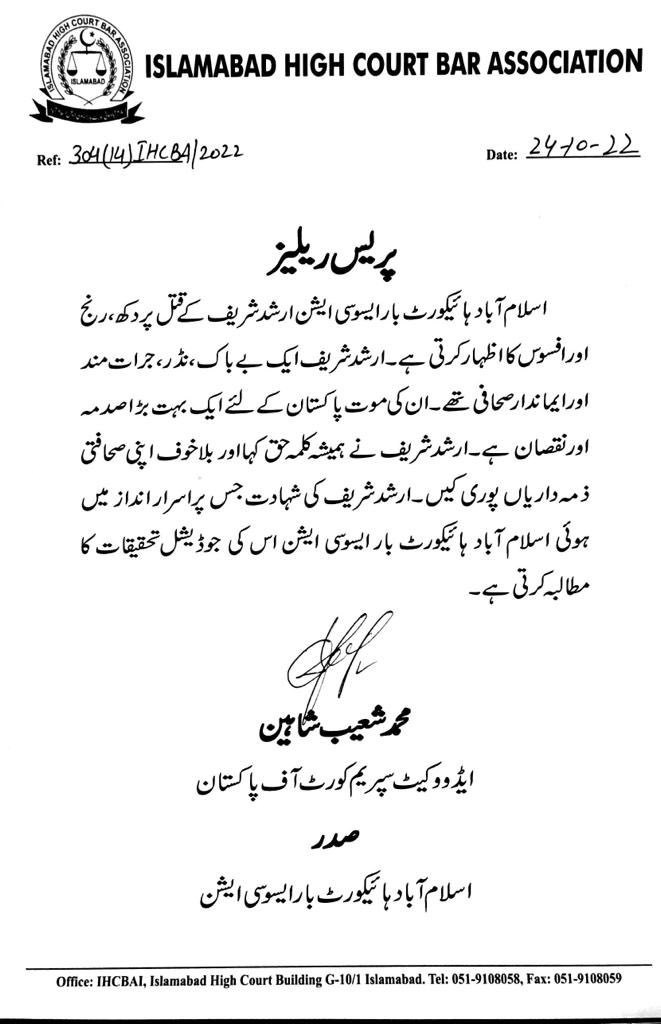 ISLAMABAD HIGH COURT BAR ASSOCIATION
ISLAMABAD HIGH COURT BAR ASSOCIATION
ISLAMABAD
Ref: 304(14)IHCBA/2022
Date: 24-10-22
پریس ریلیز
اسلام آباد ہائیکورٹ بار ایسوسی ایشن ارشد شریف کے قتل پر دکھ، رنج
اور افسوس کا اظہار کرتی ہے۔ ارشد شریف ایک بے باک، نڈر، جرات مند
اور ایماندار صحافی تھے۔ ان کی موت پاکستان کے لئے ایک بہت بڑا صدمہ
اور نقصان ہے۔ ارشد شریف نے ہمیشہ کلمہ حق کہا اور بلا خوف اپنی صحافتی
ذمہ داریاں پوری کیں۔ ارشد شریف کی شہادت جس پراسرار انداز میں
ہوئی اسلام آباد ہائیکورٹ بار ایسوسی ایشن اس کی جوڈیشل تحقیقات کا
مطالبہ کرتی ہے۔
محمد شعیب شاہین
ایڈووکیٹ سپریم کورٹ آف پاکستان
صدر
اسلام آباد ہائیکورٹ بار ایسوسی ایشن
Office: IHCBAI, Islamabad High Court Building G-10/1 Islamabad. Tel: 051-9108058, Fax: 051-9108059